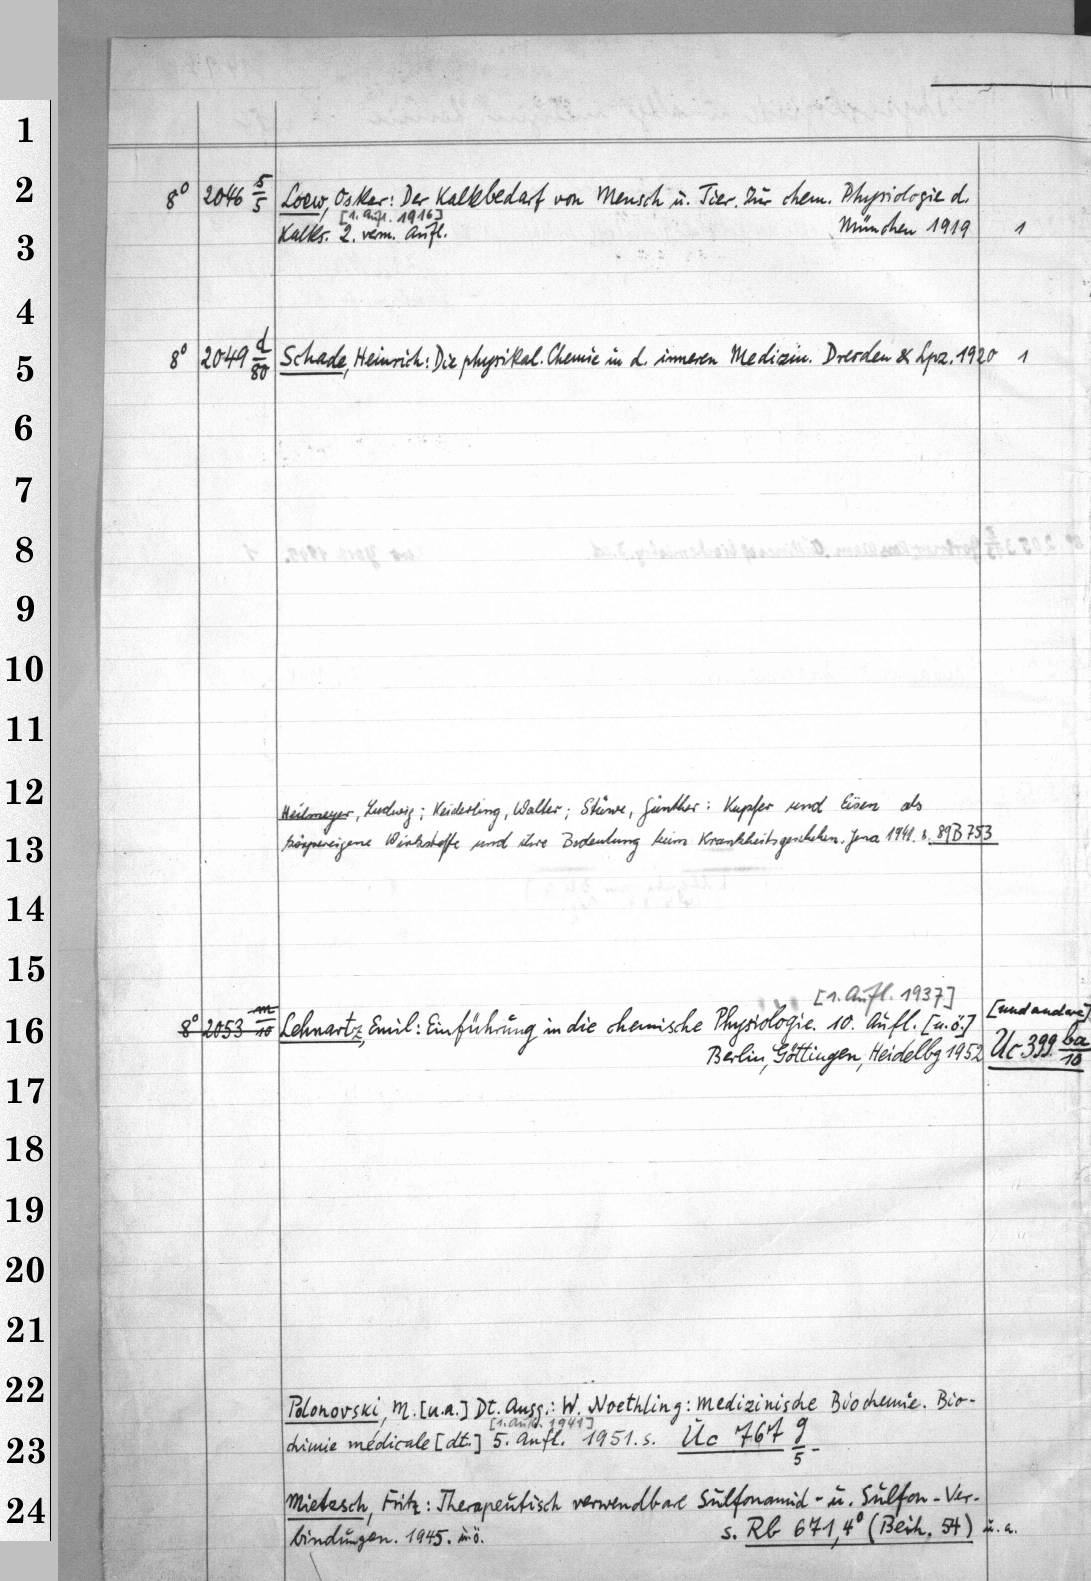 1
2
3
4
5
6
7
8
9
10
11
12
13
14
15
16
17
18
19
20
21
22
23
24
8° 2046 5/5 Loew, Oskar: Der Kalkbedarf von Mensch u. Tier. Zur chem. Physiologie d.
[1. Aufl. 1916]
Kalks. 2. verm. Aufl. München 1919 1
8° 2049 d/80 Schade, Heinrich: Die physikal. Chemie in d. inneren Medizin. Dresden & Lpz. 1920 1
Heilmeyer, Ludwig; Keiderling, Walter; Stüwe, Günther: Kupfer und Eisen als
körpereigene Wirkstoffe und ihre Bedeutung beim Krankheitsgeschehen. Jena 1941. s. 89B753
[1. Aufl. 1937] [und andere]
8° 2053 m/10 Lehnartz, Emil: Einführung in die chemische Physiologie. 10. Aufl. [u.ö.] Uc 399 ba/10
Berlin, Göttingen, Heidelbg 1952
Polonovski, M. [u.a.] Dt. Ausg.: W. Noethling: Medizinische Biochemie. Bio-
[1. Aufl. 1941]
chimie médicale [dt.] 5. Aufl. 1951. s. Uc 767 g/5
Mietzsch, Fritz: Therapeutisch verwendbare Sulfonamid- u. Sulfon-Ver-
bindungen. 1945. u.ö. s. Rb 671, 4° (Beih. 54) u. a.